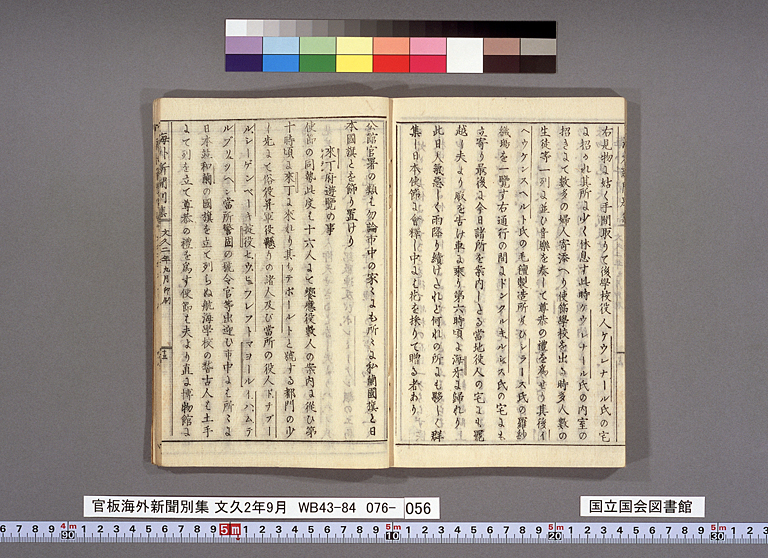 右見物に姑く手間取りて後學校役人ケウレナール氏の宅
に招かれ其所に少く休息す此時ケウレナール氏の内室の
招きにて數多の婦人寄添へり使節學校を出る時多人數の
生徒等一列に並ひ音樂を奏して尊恭の禮を爲せり其後イ
ヘウケンスヘルト氏の毛氈製造所及ひレラース氏の羅紗
織塲を一覽す右通行の間にドンクルキルシス氏の宅にも
立寄り最後に全日諸所を案内しとる當地役人の宅に罷
越し夫より厩を告け車に乘り第六時頃に海牙に歸れり
此日天氣惡しく雨降り續けとれと何れの所にも夥しく群
集し日本使節に會釋し中にも花を採りて贈る者あり
公館官署の類も勿論市中の家々にも所々に和蘭國旗と日
本國旗とを飾り置けり
來丁府遊覽の事
使節の同勢此度も十六人にて饗應役數人の案内に從ひ第
十時頃に來丁に來れり其もテポールトと號する都門の少
し先にて俗役并軍役懸りの諸人及ひ當所の役人ドナブー
ル、シーゲンベーキ次役セウヒウレフトマヨールイ、ハ、ムテ
ルブリッツヘン當所警固の號令官等出迎ひ市中にも所々に
日本并和蘭の國旗を立て列らぬ航海學校の警古人も土手
にて列を立て尊恭の禮を爲す使節も夫より直に博物館に
海外新聞別集
文久二年九月印刻
官板海外新聞別集 文久2年9月 WB43-84 076-056
国立国会図書館